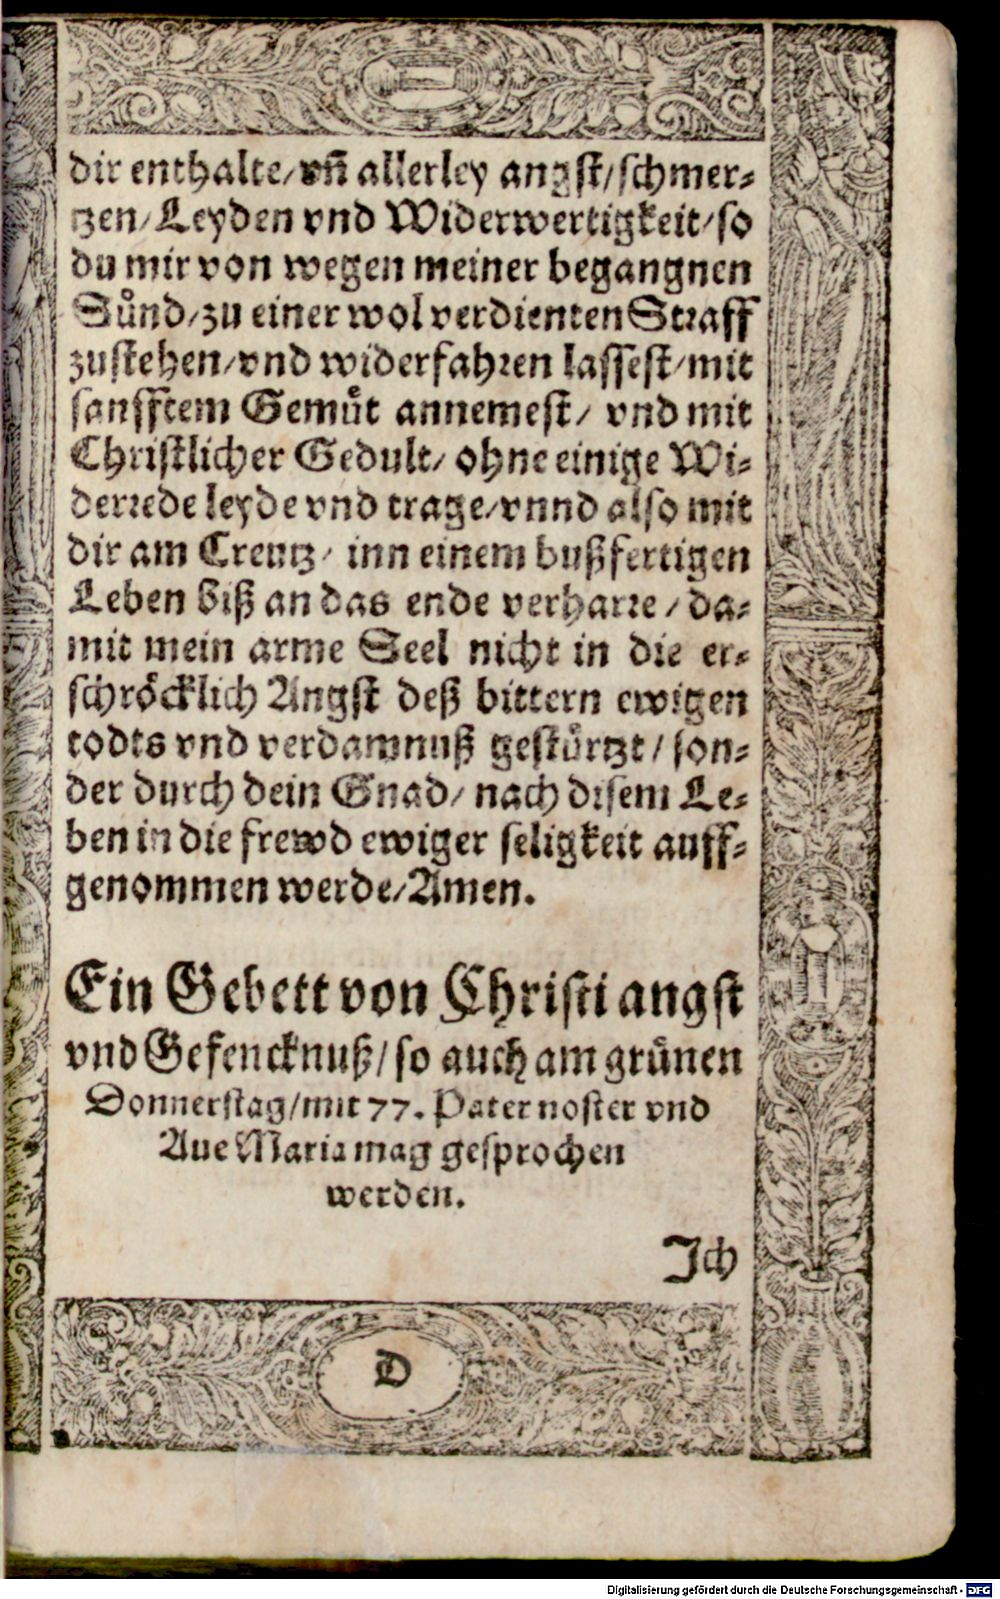 dir enthalte/ vñ allerley angst/ schmer⸗
tzen/ Leyden vnd Widerwertigkeit/ so
du mir von wegen meiner begangnen
Sůnd/ zu einer wol verdienten Straff
zustehen/ vnd widerfahren lassest/ mit
sanfftem Gemůt annemest/ vnd mit
Christlicher Gedult/ ohne einige Wi⸗
derrede leyde vnd trage/ vnnd also mit
dir am Creutz/ inn einem bußfertigen
Leben biß an das ende verharre/ da⸗
mit mein arme Seel nicht in die er⸗
schröcklich Angst deß bittern ewigen
todts vnd verdamnuß gestürtzt/ son⸗
der durch dein Gnad/ nach disem Le⸗
ben in die frewd ewiger seligkeit auff⸗
genommen werde/ Amen.
Ein Gebett von Christi angst
vnd Gefencknuß/ so auch am grünen
Donnerstag/ mit 77. Pater noster vnd
Aue Maria mag gesprochen
werden.
Ich
D
Digitalisierung gefördert durch die Deutsche Forschungsgemeinschaft - DFG